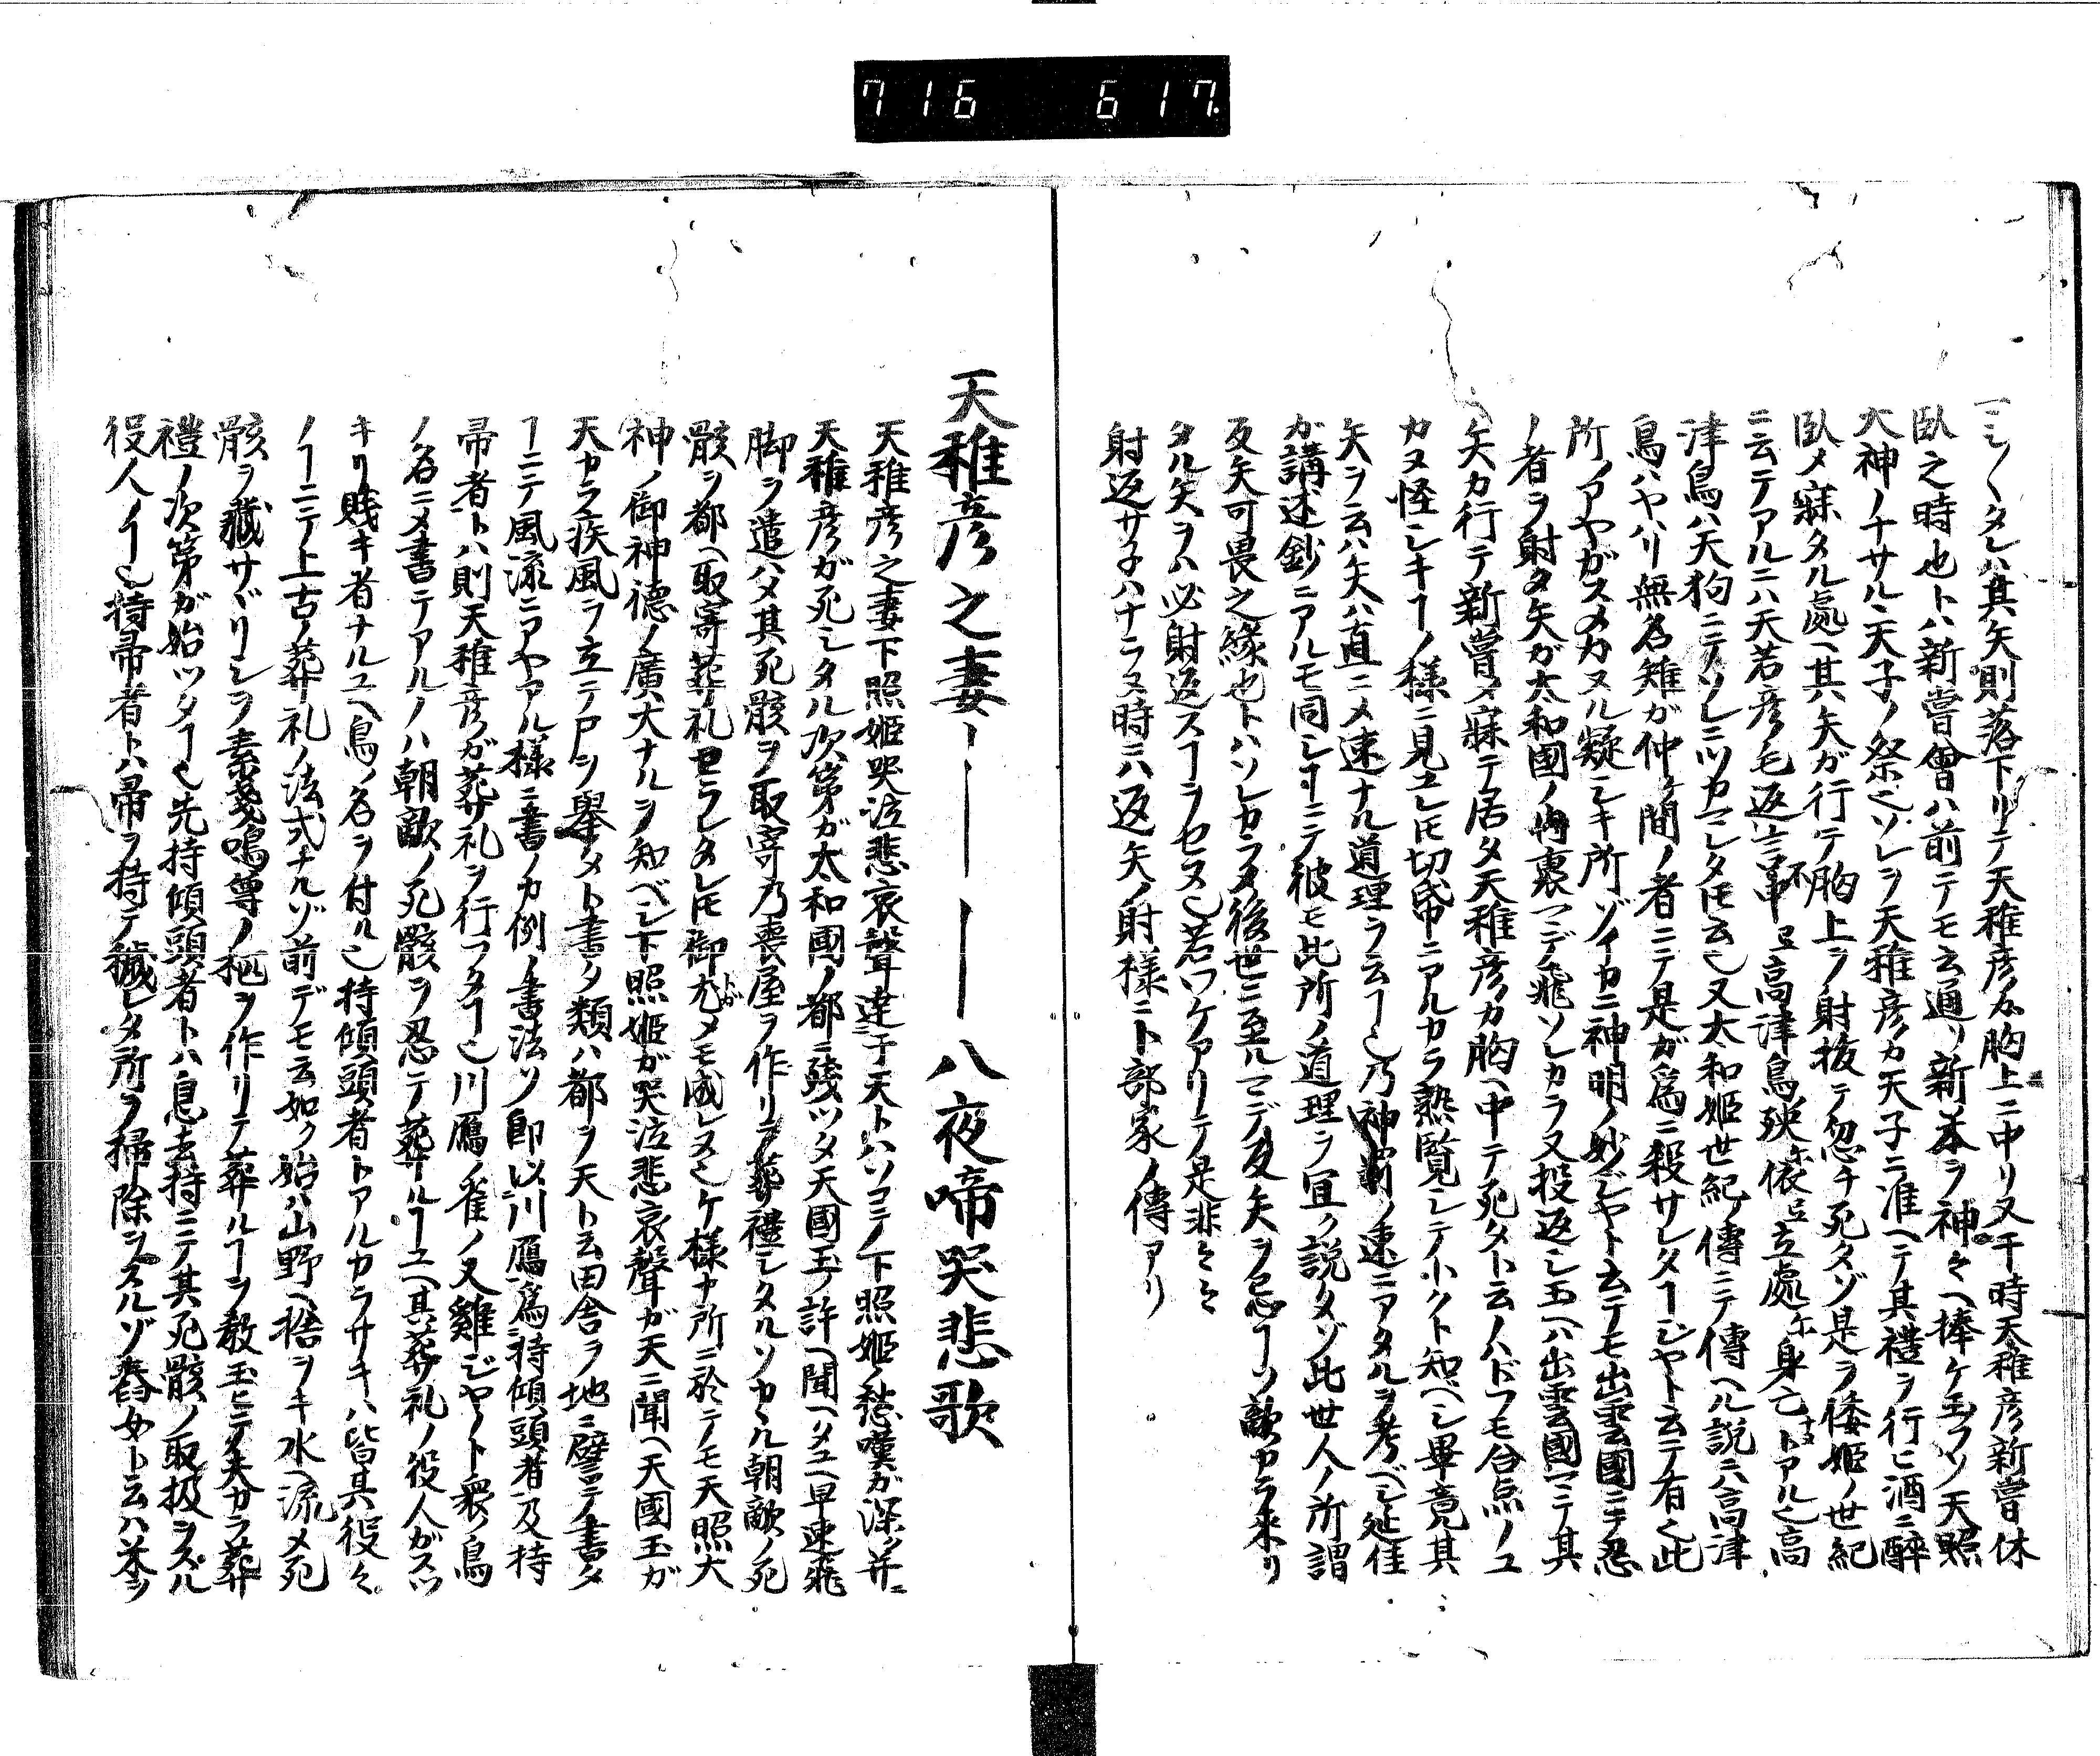 716 617
ミシクタレハ其矢則落下リテ天稚彦カ胸上ニ中リ又于時天稚彦新嘗休
臥之時也トハ新嘗會ハ前テモ云通ソ新本ヲ神々ヘ捧ケ玉フソ天照
大神ノナサルヽ天子ノ祭ヒソレヲ天稚彦カ天子ニ准ヘテ其禮ヲ行ヒ酒ニ醉
臥メ寐タル處ヘ其矢が行テ胸上ヲ射抜テ忽チ死タゾ是ヲ倭姫ノ世紀
ニ云テアルニハ天若彦毛返言不申旦高津鳥殃尓依旦立處尓身亡トアルヒ高
津鳥ハ天狗ニテソレニツカマレタ圧云ヒ又太和姫世紀ノ傳ニテ傳ヘル説ニハ高津
鳥ハヤハリ無名雉が仲ケ間ノ者ニテ是が爲ニ殺サレタヿジヤト云テ有ヒ此
所ノアヤガスメカヌル疑シキ所ゾイカニ神明ノ妙ジヤト云テモ出雲國ニテ忍
ノ者ヲ射タ矢が太和國ノ内裏マデ飛ソレカラ又投返シ玉ヘハ出雲國マテ其
矢カ行テ新嘗メ寐テ居タ天稚彦カ胸ヘ中テ死タト云ノハドフモ合点ノユ
カヌ怪シキヿノ様ニ見エレ圧切帋ニアルカラ熟覧シテトクト知ベシ畢竟其
矢ヲ云ハ矢ハ直ニメ速ナル道理ヲ云ヿヒ乃神罰ノ速ニアタルヲ考ベシ延佳
が講述鈔ニアルモ同シヿニテ彼モ此所ノ道理ヲ宜ク説タゾ此世人ノ所謂
反矢可畏之縁也トハソレカラメ後世ニ至ルマデ反矢ヲ忌ヿソ敵カラ来リ
タル矢ヲハ必射返スヿヲセヌヒ若ワケアリテ是非々々
射返サ子ハナラヌ時ニハ返矢ノ射様ニト部家ノ傳アリ
天稚彦之妻ーーーー八夜啼哭悲歌
天稚彦之妻下照姫哭泣悲哀聲達于天トハソコテノ下照姫ノ愁嘆が深ソ并ニ
天稚彦が死シタル次第が太和國ノ都ニ残ツタ天國玉ノ許ヘ聞ヘメユヘ早速飛
脚ヲ遣ハメ其死骸ヲ取寄乃喪屋ヲ作リテ葬禮シタルソカヽル朝敵ノ死
骸ヲ都ヘ取寄葬礼セラレタレ圧御尤メモ成レヌヒケ様ナ所ニ於テモ天照大
神ノ御神徳ノ廣大ナルヲ知ベシ下照姫が哭泣悲哀聲が天ニ聞ヘ天國玉が
天カラ疾風ヲ立テ尸ヲ舉タト書タ類ハ都ヲ天ト云田舎ヲ地ニ譬テ書タ
ヿニテ風流ニアヤアル様ニ書ノカ例ノ書法ソ即以川鴈爲持傾頭者及持
帚者トハ則天稚彦が葬礼ヲ行フタヿヒ川鴈ノ雀ノ又雞ジヤノト衆ノ鳥
ノ名ニメ書テアルノハ朝敵ノ死骸ヲ忍テ葬ルヿユヘ其葬礼ノ役人がスツ
キリ賎キ者ナルユヘ鳥ノ名ヲ付ルヒ持傾頭者トアルカラサキハ皆其役々
ノヿニテ上古ノ葬礼ノ法式ナルゾ前デモ云如ク始ハ山野ヘ捨ヲキ水ヘ流メ死
骸ヲ藏サヾリシヲ素戔嗚尊ノ柩ヲ作リテ葬ルヿヲ教玉ヒテ夫カラ葬
禮ノ次第が始ツタヿヒ先持傾頭者トハ息去持ニテ其死骸ノ取扱ヲスル
役人ノヿヒ持帚者トハ帚ヲ持テ穢レタ所ヲ掃除ヲスルゾ舂女ト云ハ米ヲ